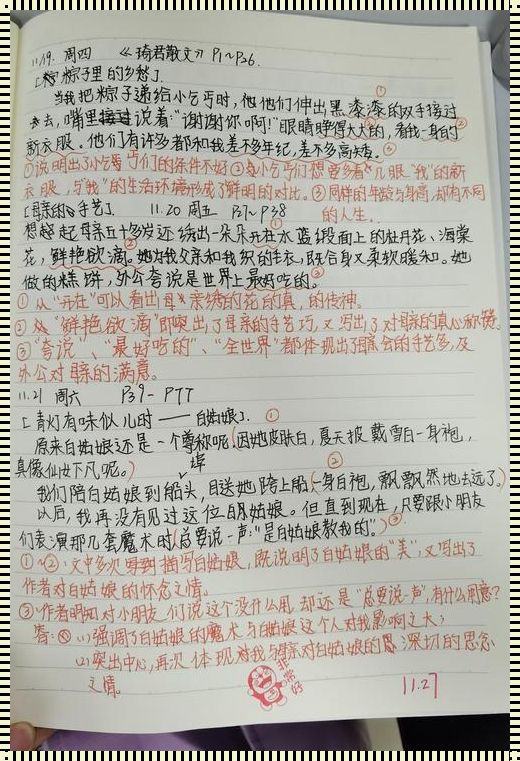 11.19. 周四 《琦君散文》 P1~P26.
[粽子里的乡愁]
当我把粽子递给小乞丐时,他们伸出黑漆漆的双手接过①
去,嘴里说着:“谢谢你啊!”眼睛睁得大大的,看我一身的②
新衣服。他们有许多都和我差不多年纪,差不多高矮。③
①说明出了小乞丐们的条件不好②小乞丐们想要多看几眼“我”的新
衣服,与“我”的生活环境形成了鲜明的对比。③同样的年龄与身高,却有不同
的人生.
[母亲的手艺]. 11.20 周五 P27~P38
想起母亲五十多岁还绣出一朵朵开在水蓝缎面上的牡丹花、海棠
花,鲜艳欲滴。她为我父亲和我织的毛衣,既合身又柔软暖和。她
做的糕饼,外公夸说是世界上最好吃的。
①从“开在”可以看出母亲绣的花的真,的传神。
②从“鲜艳欲滴”即突出了母亲的手艺巧,又写出了对母亲的真心称赞。
③“夸说”、“最好吃的”、“全世界”都体现出了母亲会的手艺多,及
外公对母亲的满意。
11.21 周六 P39- P77
[青灯有味似儿时——白姑娘]. ①
原来白姑娘还是一个尊称呢(因她皮肤白,夏天披戴雪白一身袍,
真像仙女下凡呢。)
我们陪白姑娘到船埠头,目送她跨上船(一身白袍,飘飘然地去远了。)②
以后,我再没有见过这位白姑娘。但直到现在,只要跟小朋友
们表演那几套魔术时(总要说一声:“是白姑娘教我的”)③
①~②:文中多次描写白姑娘,既说明了白姑娘的“美”,又写出了
作者对白姑娘的怀念之情。
③:作者明知对小朋友们说这个没什么用,却还是“总要说一声”,有什么用意?
答:(1)强调了白姑娘的魔术与白姑娘这个人对我影响之大;
(2)突出中心,再次体现对我与母亲对白姑娘的深切的思念
之情。
非常好
11.27